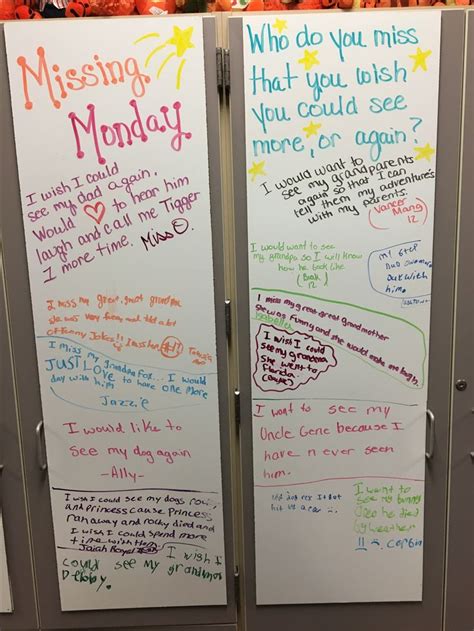 Missing
Monday
I wish I could
see my dad again,
Would to hear him
laugh and call me Tigger
1 more time. Miss O
I miss my great, great grandma
she was very funny and told a lot
of funny Jokes!!
I miss my Grandpa Fox... I would
JUST LOVE to have one more
day with him
Jazzie
I would like to
see my dog again
-Ally-
I wish I could see my dogs rocky
and Princess cause Princess
ranaway and rocky died and
I wish I could spend more
time with them
Jaiah
I wish I
could see my grandmas
Debby.
Who do you miss
that you wish
you could see
more, or again?
I would want to
see my grandparents
again so that I can
tell them my adventure's
with my parents.
Vancer
Mang 12
I would want to see
my grandpa so I will know
how he look like
12
him.
I miss my great great grandmother
she was funny and she would make me laugh.
Isabella
I wish I could
see my grandma
she went to
florida
I want to see my
Uncle Gene because I
have n ever seen
him.
hit by a car
I want to
see my
he died
by
!!